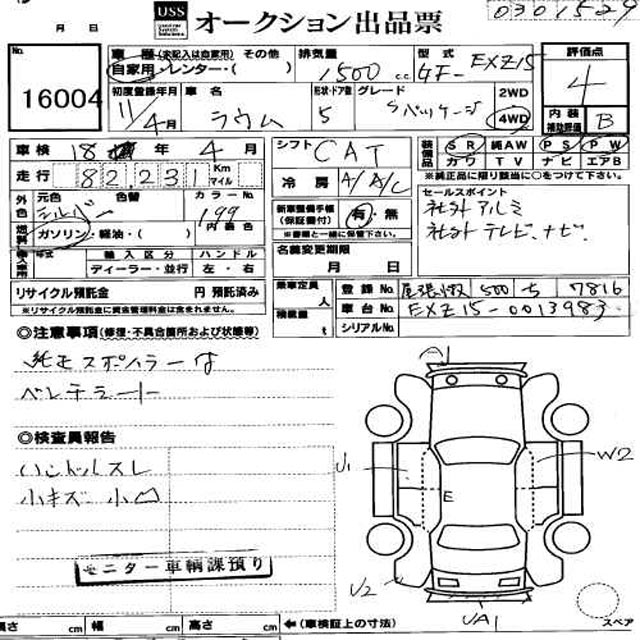 0301529
月 日
USS オークション出品票
No. 16004
車歴 (未記入は自家用) その他
自家用・レンター・( )
排気量 1500 c.c.
型式 GF- EXZ15
評価点 4
初度登録年月 11/4月
車名 ラウム
形状・ドア数 5
グレード Sパッケージ
2WD 4WD
内装補助評価 B
車検 18 年 4 月
シフト CAT
装備品 SR 純AW PS PW
カワ TV ナビ エアB
※純正品に限り該当に○をつけて下さい。
走行 82,231 Km マイル
冷房 A/C
セールスポイント
社外アルミ
社外テレビ、ナビ.
外色 元色 シルバー 色替 カラーNo. 199
燃料 ガソリン・軽油・( ) 内装色
新車整備手帳 (保証書付) 有・無
※書類と一緒に保管して下さい。
輸入車用 年式 輸入区分 ハンドル
ディーラー・並行 左・右
名義変更期限
月 日
リサイクル預託金 円 預託済み
※リサイクル預託金に資金管理料金は含まれません。
乗車定員 人
積載量 t
登録No. 尾張小牧 500 ち 7816
車台No. EXZ15-0013983
シリアルNo.
◎注意事項 (修復・不具合箇所および状態等)
純正スポイラー付
ベンチシート
◎検査員報告
ハンドルスレ
小キズ 小凹
モニター車輌課預り
A1
U1
W2
E
U2
UA1
スペア
長さ cm 幅 cm 高さ cm ←(車検証上の寸法)